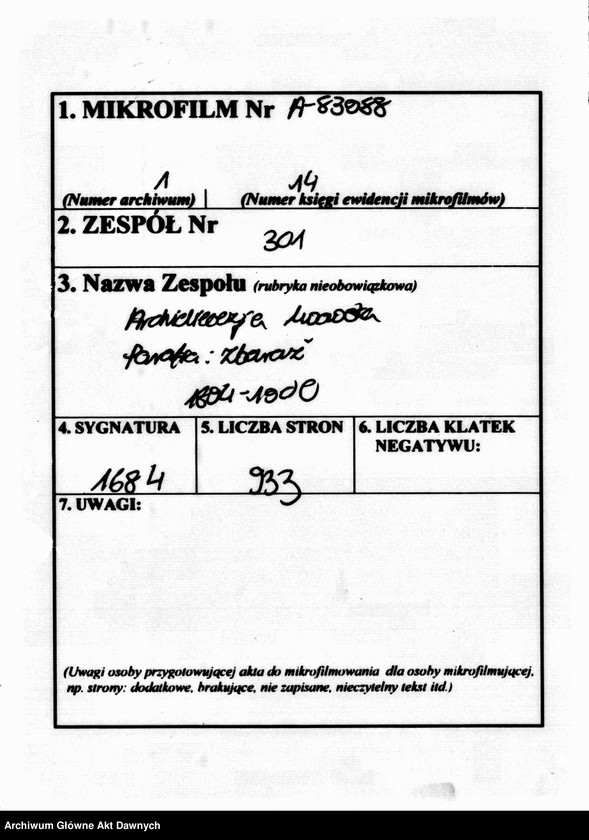 1. MIKROFILM Nr A-83088
1 14
(Numer archiwum) | (Numer księgi ewidencji mikrofilmów)
2. ZESPÓŁ Nr
301
3. Nazwa Zespołu (rubryka nieobowiązkowa)
Archidiecezja Lwowska
Parafia: Zbaraż
1894-1900
4. SYGNATURA 5. LICZBA STRON 6. LICZBA KLATEK
NEGATYWU:
1684 933
7. UWAGI:
(Uwagi osoby przygotowującej akta do mikrofilmowania dla osoby mikrofilmującej,
np. strony: dodatkowe, brakujące, nie zapisane, nieczytelny tekst itd.)
Archiwum Główne Akt Dawnych